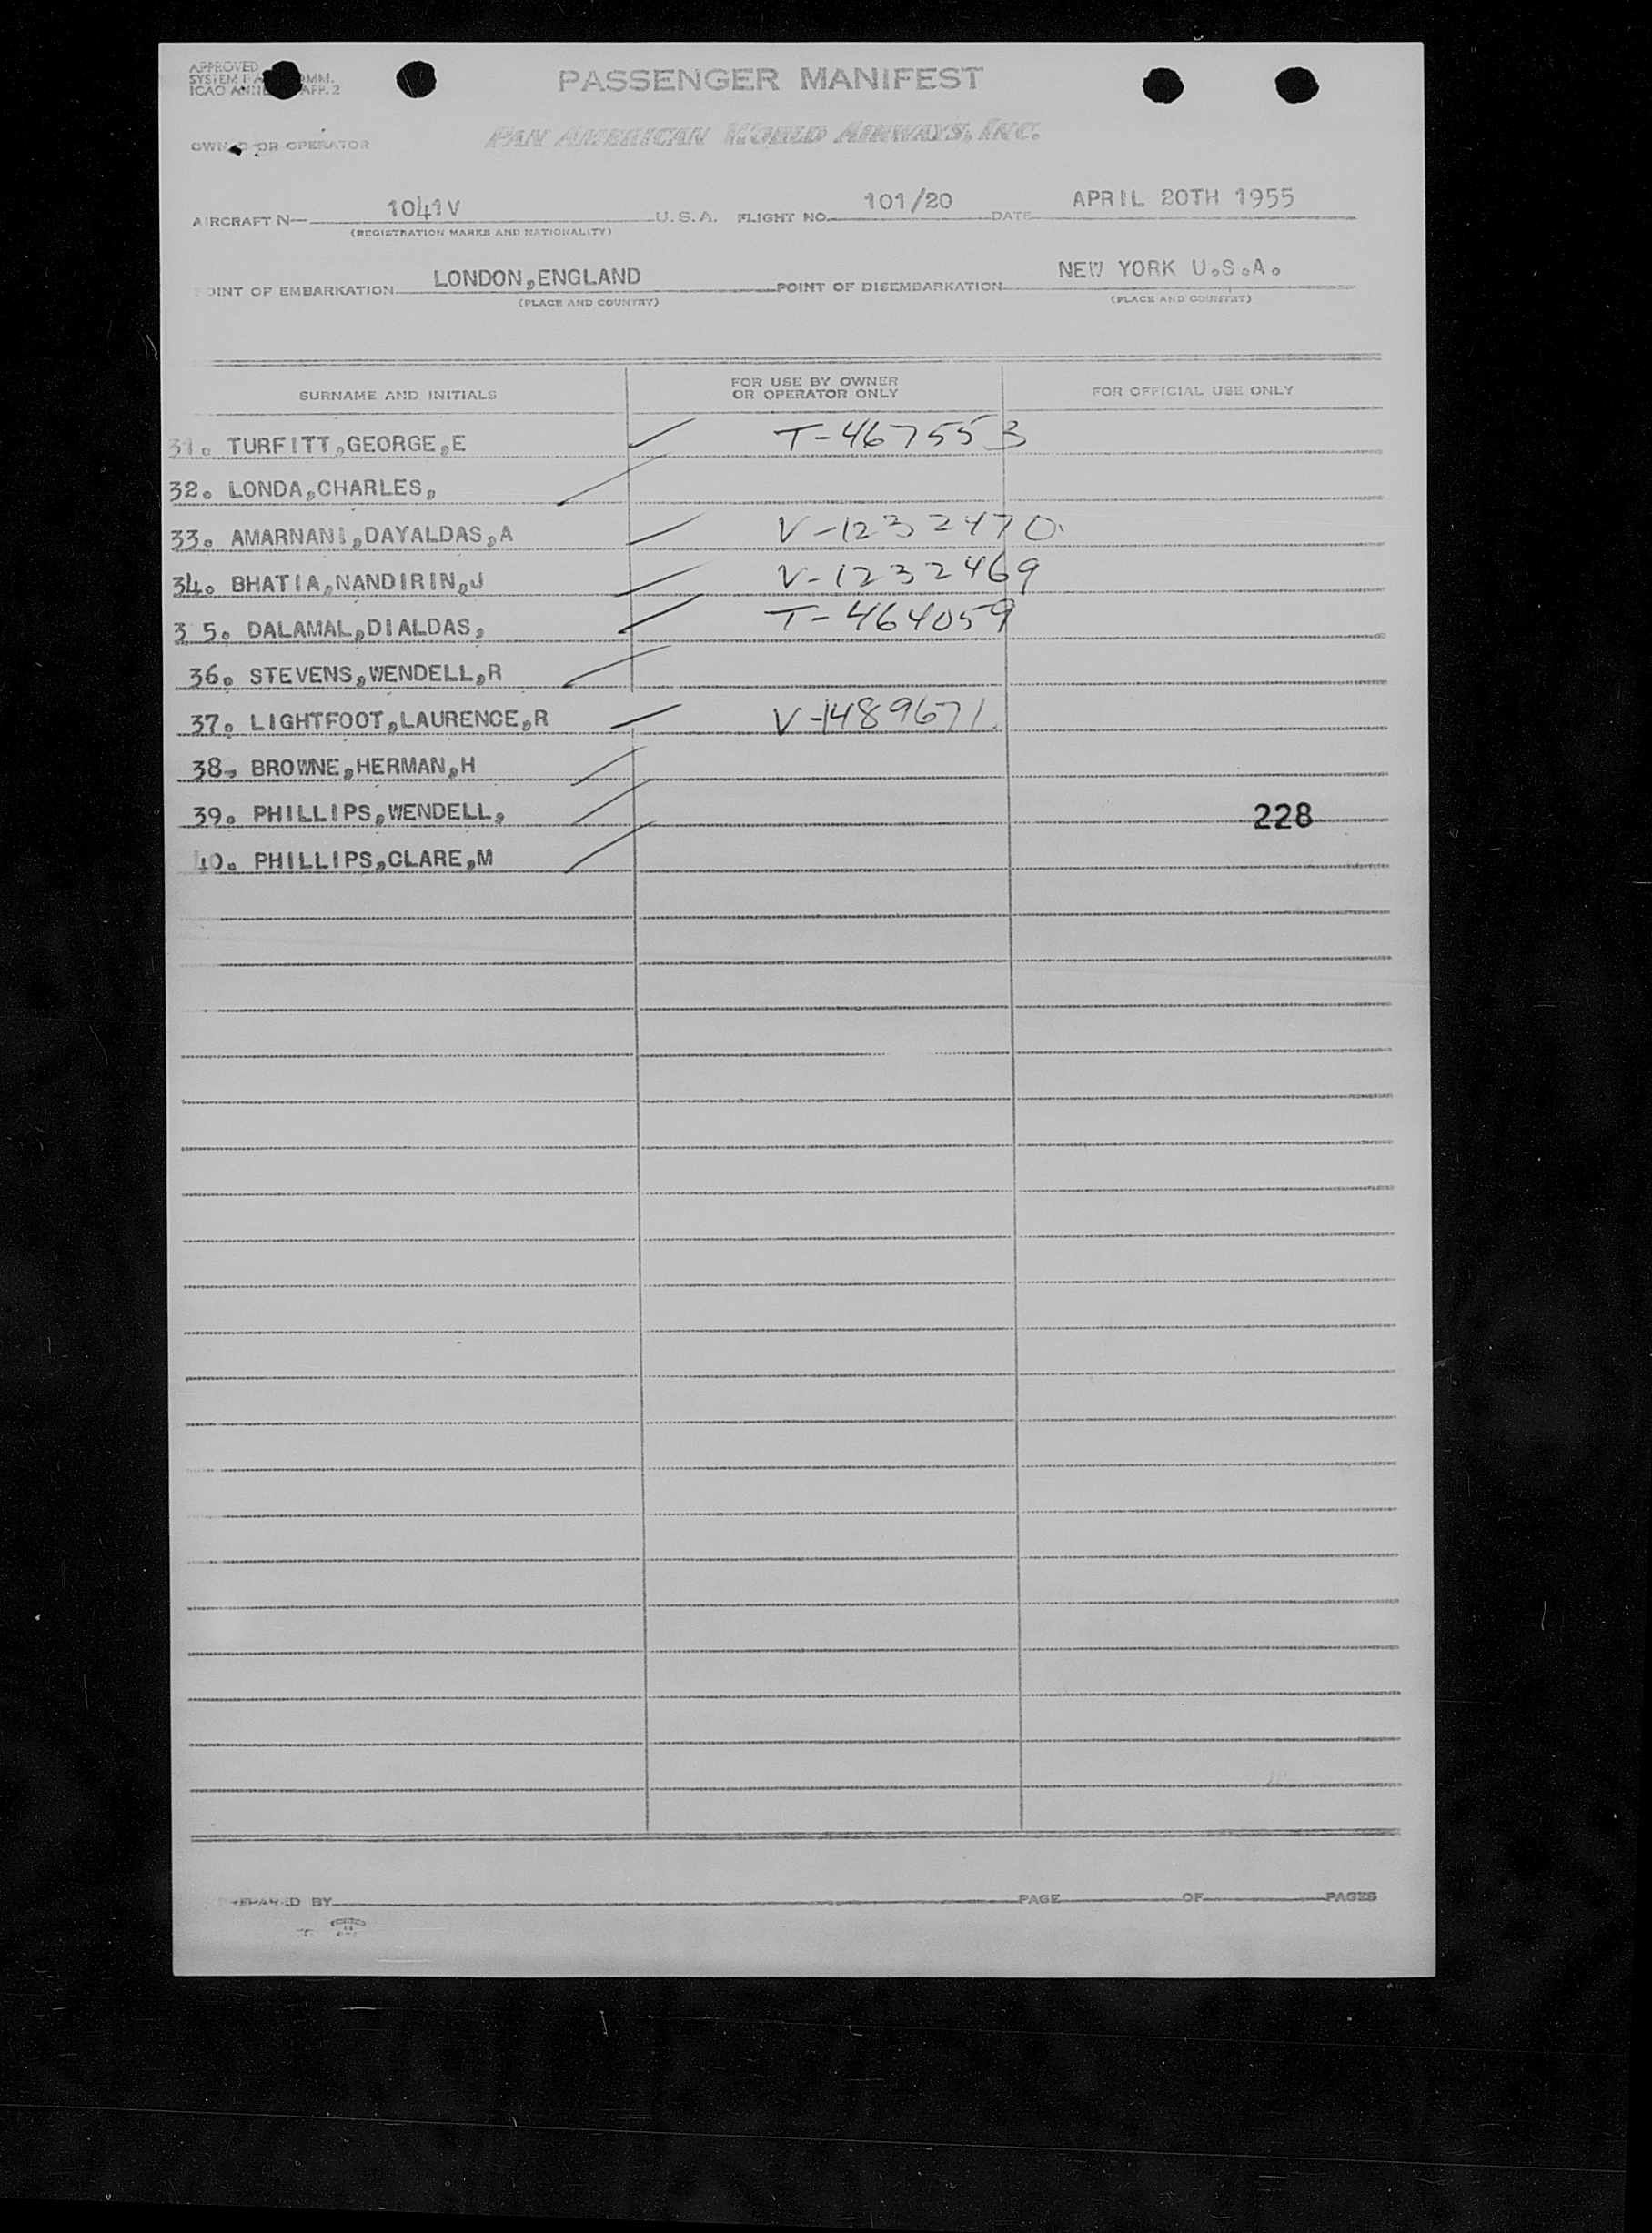 APPROVED
SYSTEM
ICAO APP. 2
PASSENGER MANIFEST
OWNER OR OPERATOR PAN AMERICAN WORLD AIRWAYS, INC.
AIRCRAFT N— 1041V U.S.A. FLIGHT NO. 101/20 DATE APRIL 20TH 1955
(REGISTRATION MARKS AND NATIONALITY)
POINT OF EMBARKATION LONDON,ENGLAND POINT OF DISEMBARKATION NEW YORK U.S.A.
(PLACE AND COUNTRY) (PLACE AND COUNTRY)
SURNAME AND INITIALS FOR USE BY OWNER OR OPERATOR ONLY FOR OFFICIAL USE ONLY
31. TURFITT,GEORGE,E T-467553
32. LONDA,CHARLES,
33. AMARNANI,DAYALDAS,A V-1232470
34. BHATIA,NANDIRIN,J V-1232469
3 5. DALAMAL,DIALDAS, T-464059
36. STEVENS,WENDELL,R
37. LIGHTFOOT,LAURENCE,R V-1489671.
38. BROWNE,HERMAN,H
39. PHILLIPS,WENDELL, 228
40. PHILLIPS,CLARE,M
PREPARED BY PAGE OF PAGES